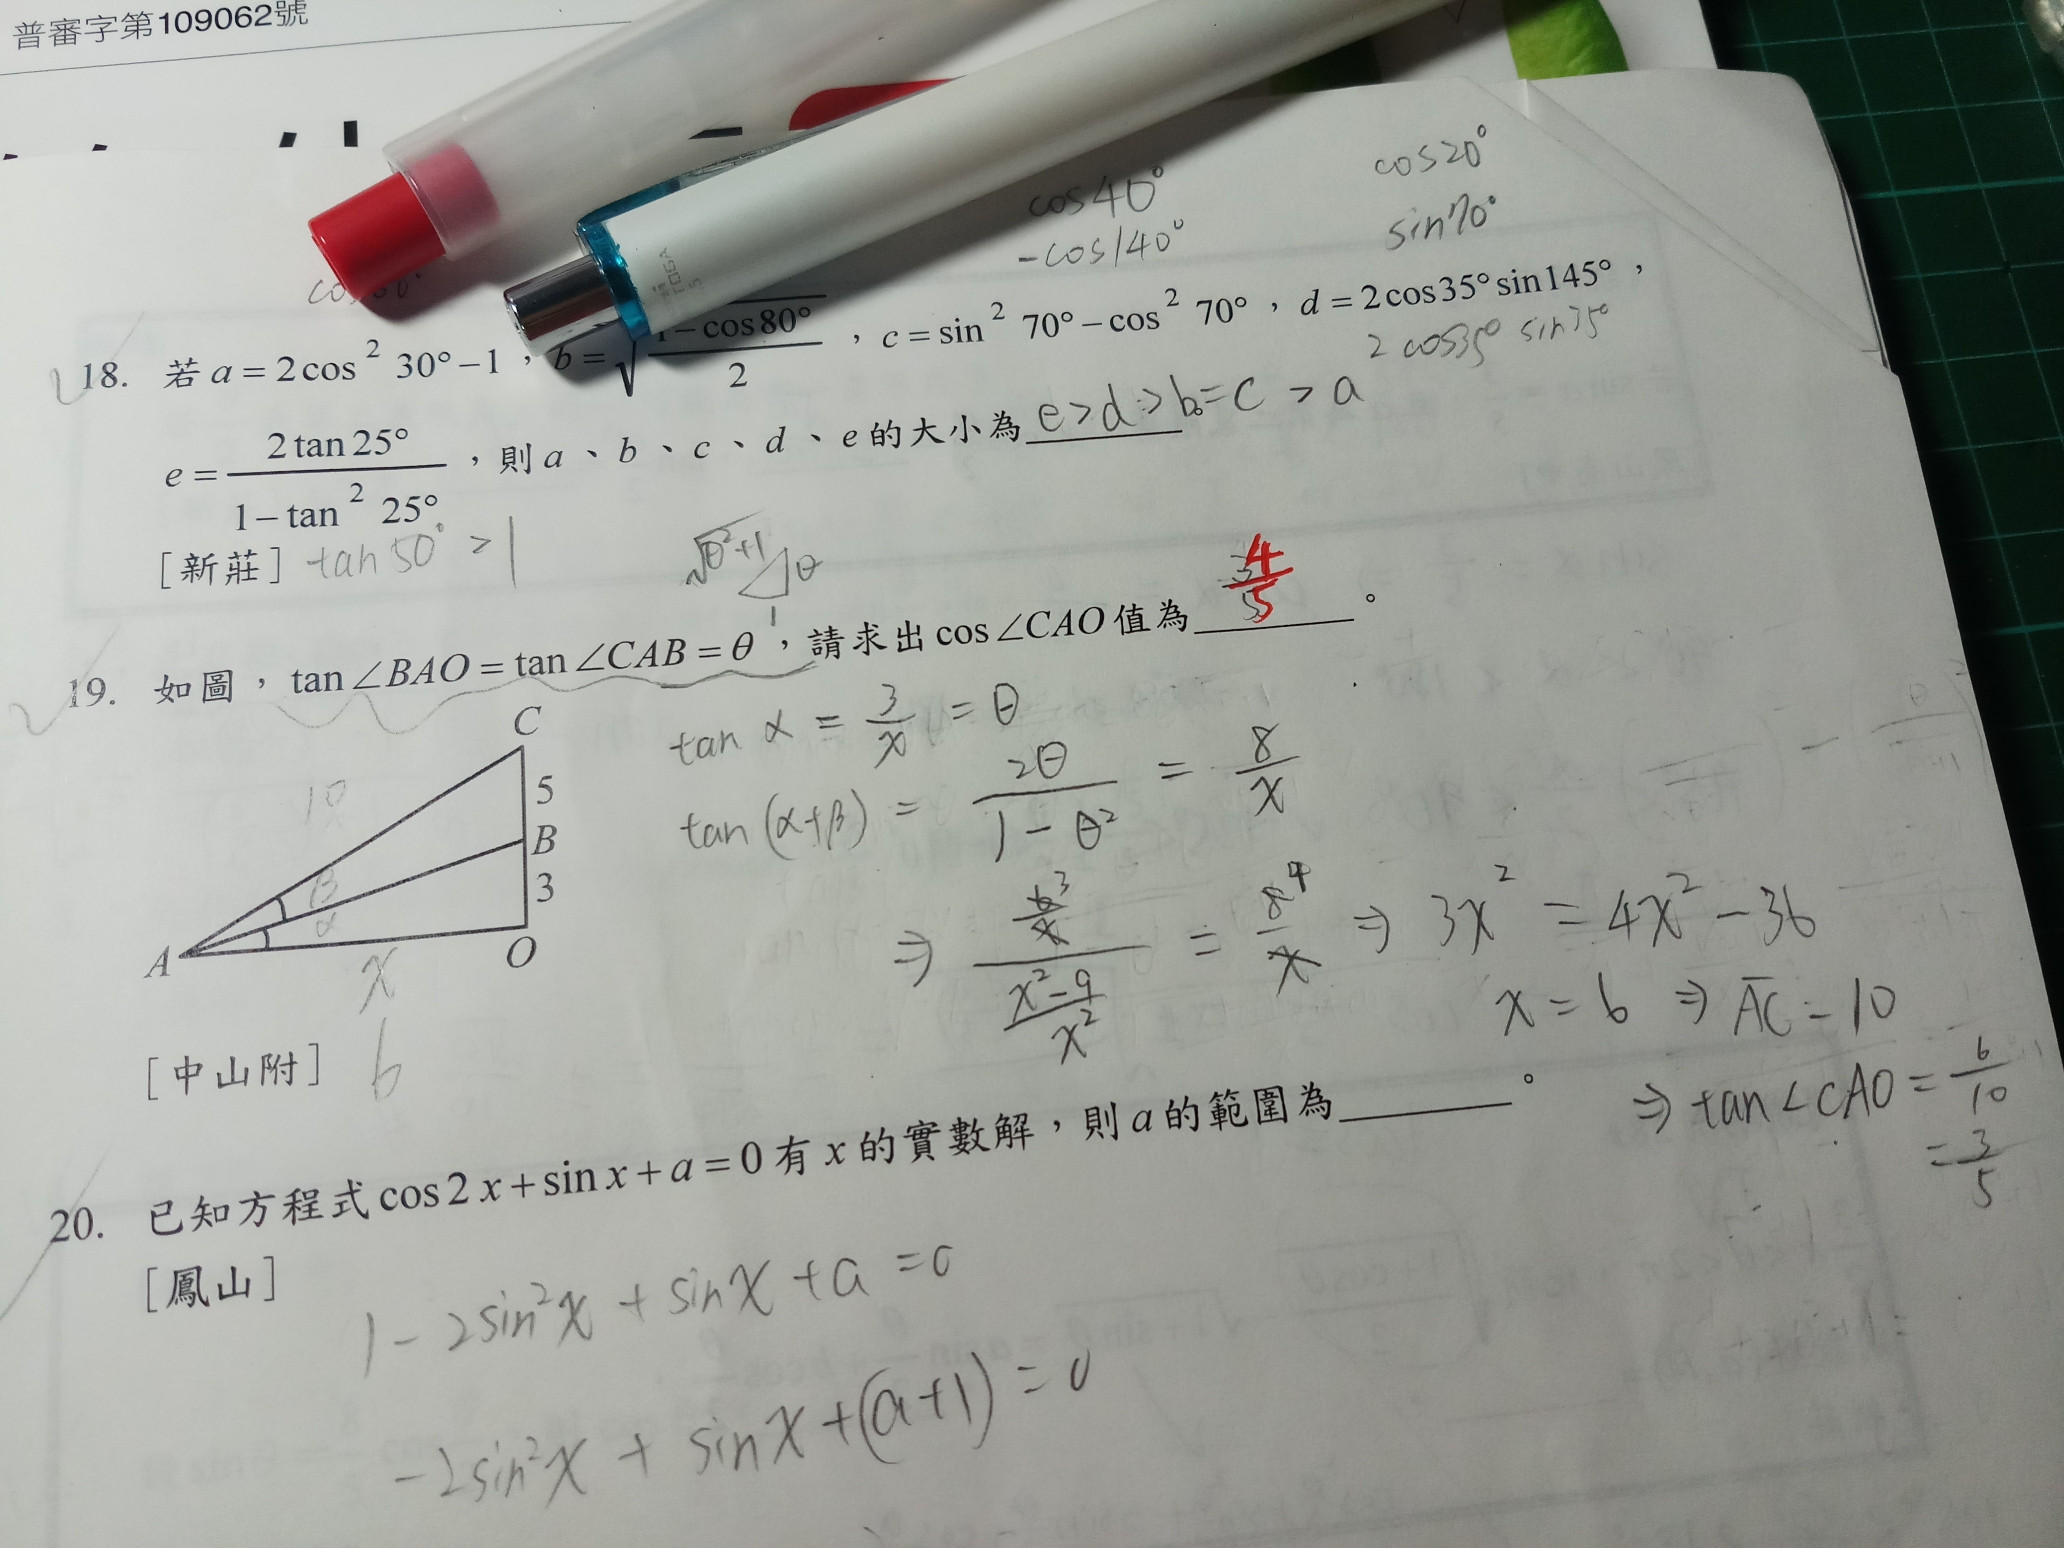 普審字第109062號
cos40°
-cos140°
cos20°
sin70°
18. 若 a = 2cos² 30° − 1 , b = √ − cos80° / 2 , c = sin² 70° − cos² 70° , d = 2cos35° sin145° ,
2 cos35° sin35°
e = 2tan25° / 1 − tan² 25° , 則 a 、 b 、 c 、 d 、 e 的大小為 e > d > b = c > a
[新莊] tan50° > 1
√θ²+1 θ
1
19. 如圖 , tan∠BAO = tan∠CAB = θ , 請求出 cos∠CAO 值為 4/5 。
C
5
B
3
O
A
10
β
α
x
6
tan α = 3/x = θ
tan (α+β) = 2θ / 1 − θ² = 8/x
⇒ 6/x 3 / x²−9/x² = 8/x 4 ⇒ 3x² = 4x² − 36
x = 6 ⇒ AC = 10
⇒ tan∠CAO = 6/10
= 3/5
[中山附]
20. 已知方程式 cos2x + sinx + a = 0 有 x 的實數解 , 則 a 的範圍為 。
[鳳山]
1 − 2sin²x + sinx + a = 0
−2sin²x + sinx + (a+1) = 0